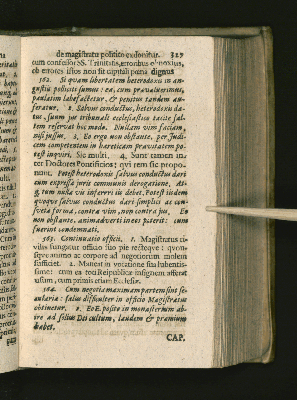 de magistratu politico exsonitur. 329
cum confessor SS. Trinitatis, erroribus obnoxius,
ob errores istos non sit capitali pœna dignus
362. Si quam libertatem heterodoxis in an-
gustiis politicis sumus: ea, cum prævaluerimus,
paulatim labefactetur, & penitus tandem au-
feratur. 2. Salvus conductus, heterodoxis da-
tus, suum jus tribunali ecclesiastico tacite sal-
tem reservat hoc modo. Nullam vim faciam,
nisi justus. 3. Eo ergo non obstante, per Judi-
cem competentem in hæreticam pravitatem po-
test inquiri. Sic multi. 4. Sunt tamen in-
ter Doctores Pontificios: qvi rem sic propo-
nunt. Potest heterodoxis salvus conductus dari
cum expressa juris communis derogatione, At-
q̄ tum nulla vis inferri iis debet. Potest iisdem
quoqve salvus conductus dari simplici ac con-
sveta forma, contra vim, non contra jus. Eo
non obstante, animadverti in eos poterit: cum
fuerint condemnati.
363. Continuatio officii, 1. Magistratus ci-
vilis fungatur officio suo pie recteque: quous-
que animo ac corpore ad negotiorum molem
sufficiet. 2. Maneat in vocatione sua lubentis-
sime: cum ea toti Reipublicæ insignem afferat
usum, cum primis etiam Ecclesiæ.
364. Cum negotia maximam partem sint se-
cularia: salus difficulter in officio Magistratus
obtinetur. 2. Eo Exposito in monasterium ab-
ire ad solius Dei cultum, laudem & præmium
habet.
CAP.